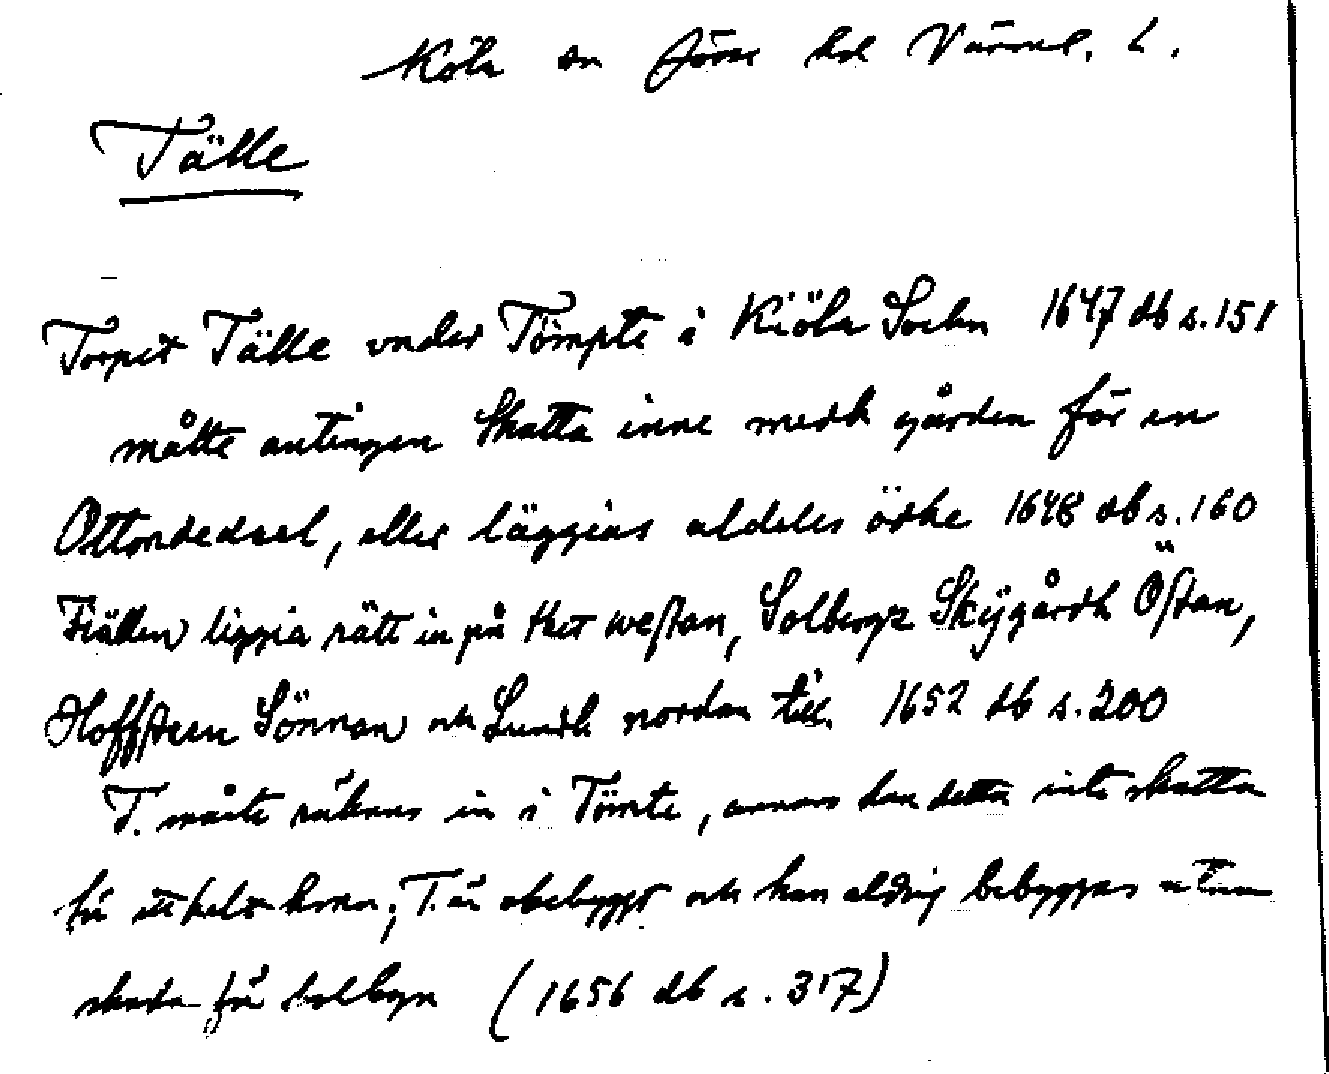 Köla sn Jösse hd Värml. L.
Tälle
Torpet Tälle vnder Tömpte i Kiöla Sochn 1647 db s. 151
måtte antingen Skatta inne medh gården för en
Ottondedeel, eller läggias aldeles ödhe 1648 db s. 160
Fiällen liggia rätt in på thet westan, Solbergz Skÿgårdh Östan,
Hoffsteen Sönnan och Lundh nordan till 1652 db s. 200
T. måste räknas in i Tömte, annars kan detta inte skatta
för ett helt hemn; T. är obebyggt och kan aldrig bebyggas utan
skada för bolbyn (1656 db s. 317)